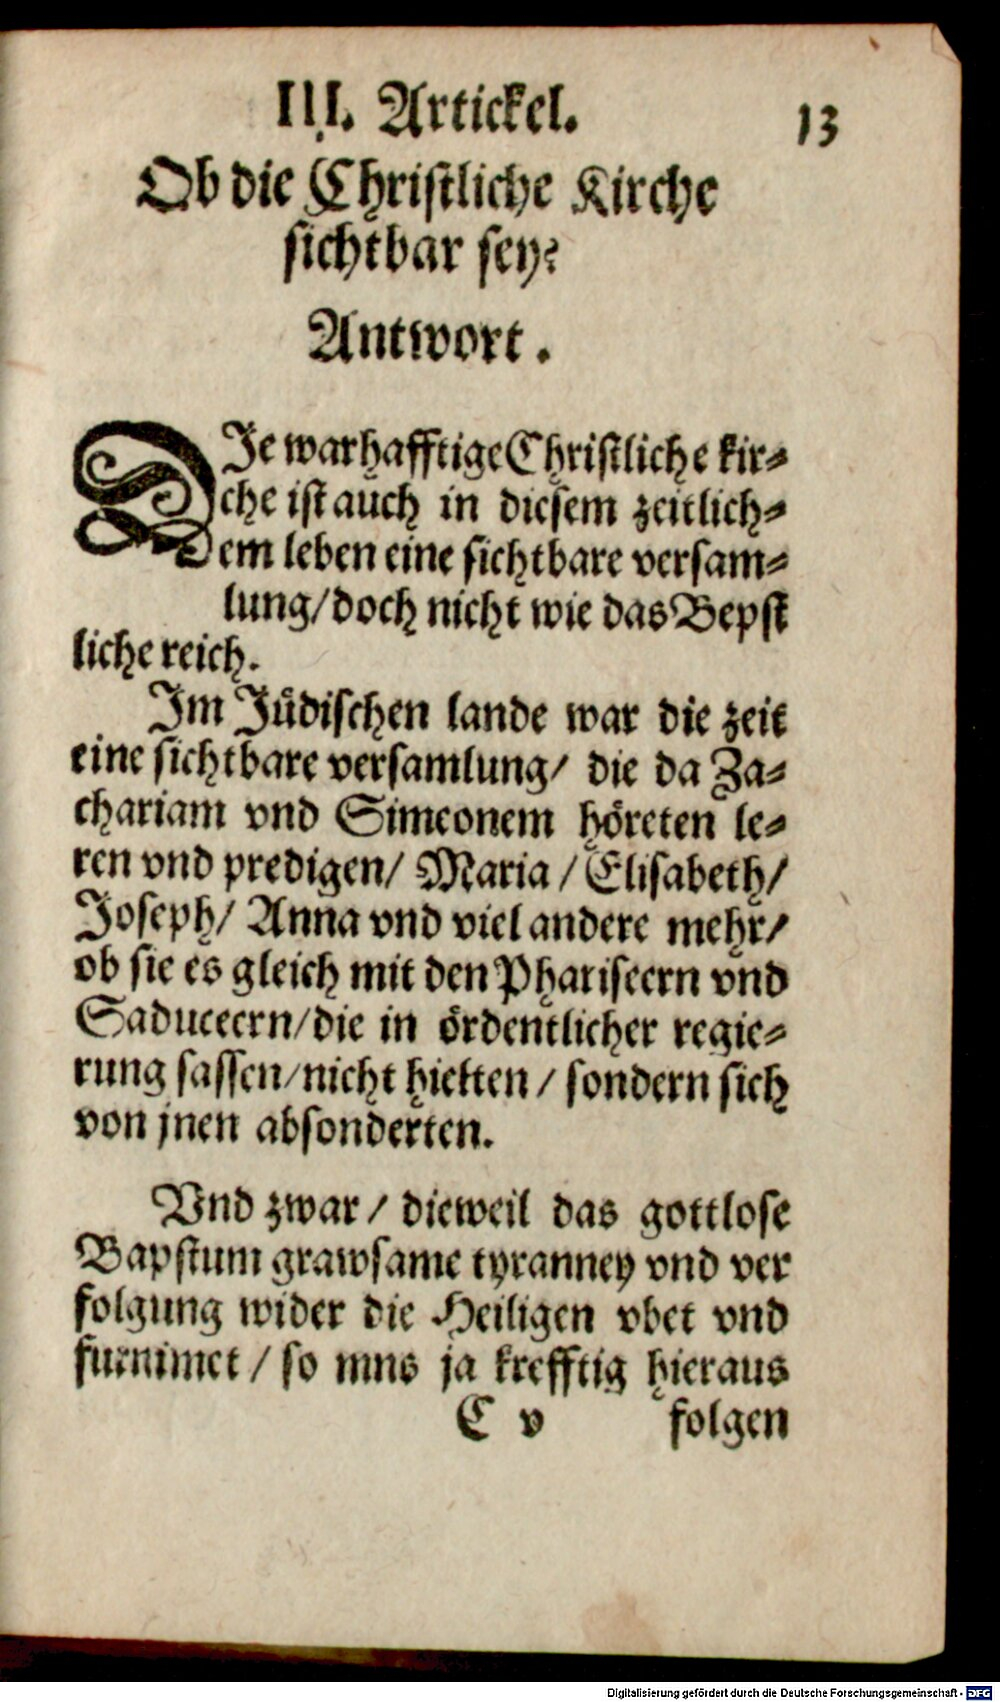 III. Artickel.
13
Ob die Christliche Kirche
sichtbar sey?
Antwort.
DIe warhafftige Christliche kir⸗
che ist auch in diesem zeitlich⸗
em leben eine sichtbare versam⸗
lung/ doch nicht wie das Bepst
liche reich.
Im Jüdischen lande war die zeit
eine sichtbare versamlung/ die da Za⸗
chariam vnd Simeonem höreten le⸗
ren vnd predigen/ Maria/ Elisabeth/
Joseph/ Anna vnd viel andere mehr/
ob sie es gleich mit den Phariseern vnd
Saduceern/ die in ördentlicher regie⸗
rung sassen/ nicht hielten/ sondern sich
von jnen absonderten.
Vnd zwar/ dieweil das gottlose
Bapstum grawsame tyranney vnd ver
folgung wider die Heiligen vbet vnd
furnimet/ so mus ja krefftig hieraus
C v folgen
Digitalisierung gefördert durch die Deutsche Forschungsgemeinschaft - DFG